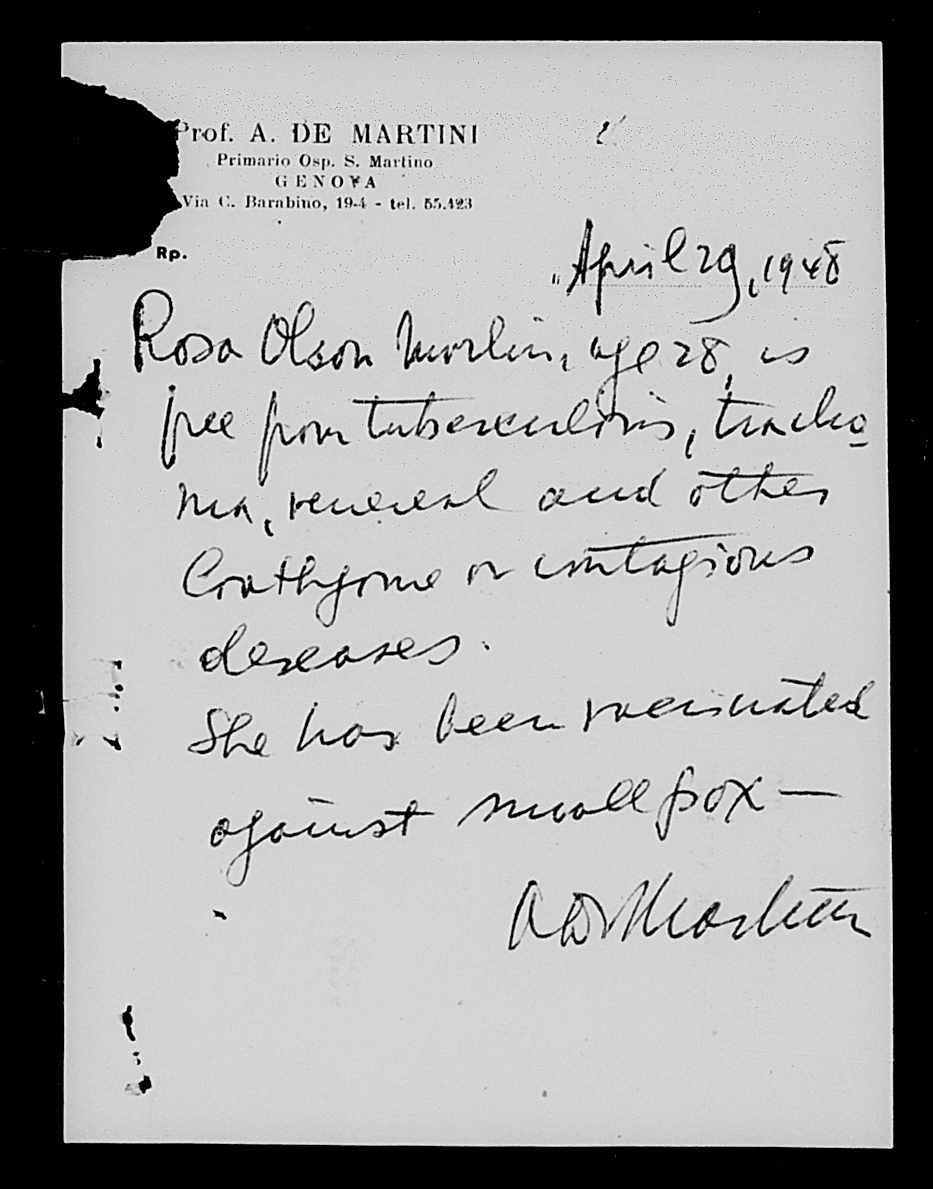 Prof. A. DE MARTINI
Primario Osp. S. Martino
GENOVA
Via C. Barabino, 19-4 - tel. 55.423
Rp.
April 29, 1948
Rosa Olson Morlin, age 28, is
free from tuberculosis, tracho
ma, venereal and other
Loathsome or contagious
deseases.
She has been vaccinated
against small pox —
A De Martini